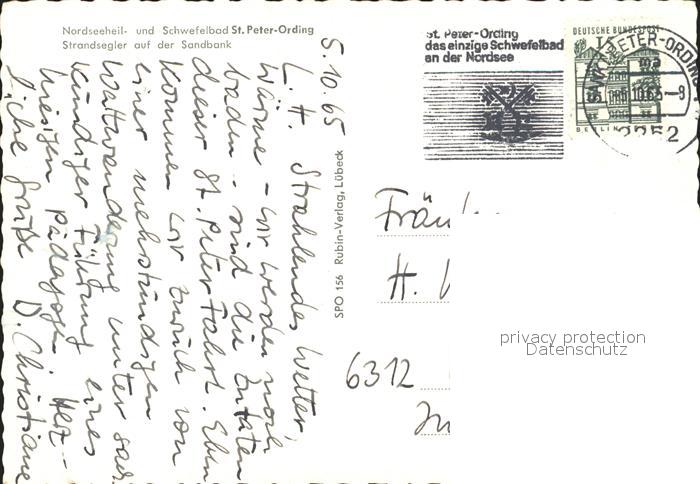 Nordseeheil- und Schwefelbad St. Peter-Ording
Strandsegler auf der Sandbank
5.10.65
L. H. Strahlendes Wetter,
Wärme - wir werden noch
baden - sind die Zutaten
dieser St. Peter Fahrt. Eben
kommen wir zurück von
einer mehrstündigen
Wattwanderung unter sach-
kundiger Führung eines
hiesigen Pädagogen. Herz-
liche Grüße D. Christiane
SPO 156 Rubin-Verlag, Lübeck
St. Peter-Ording
das einzige Schwefelbad
an der Nordsee
DEUTSCHE BUNDESPOST
15
BERLIN
PETER-ORDING
-5.10.65-8
2252
Fräu
H.
6312
privacy protection
Datenschutz